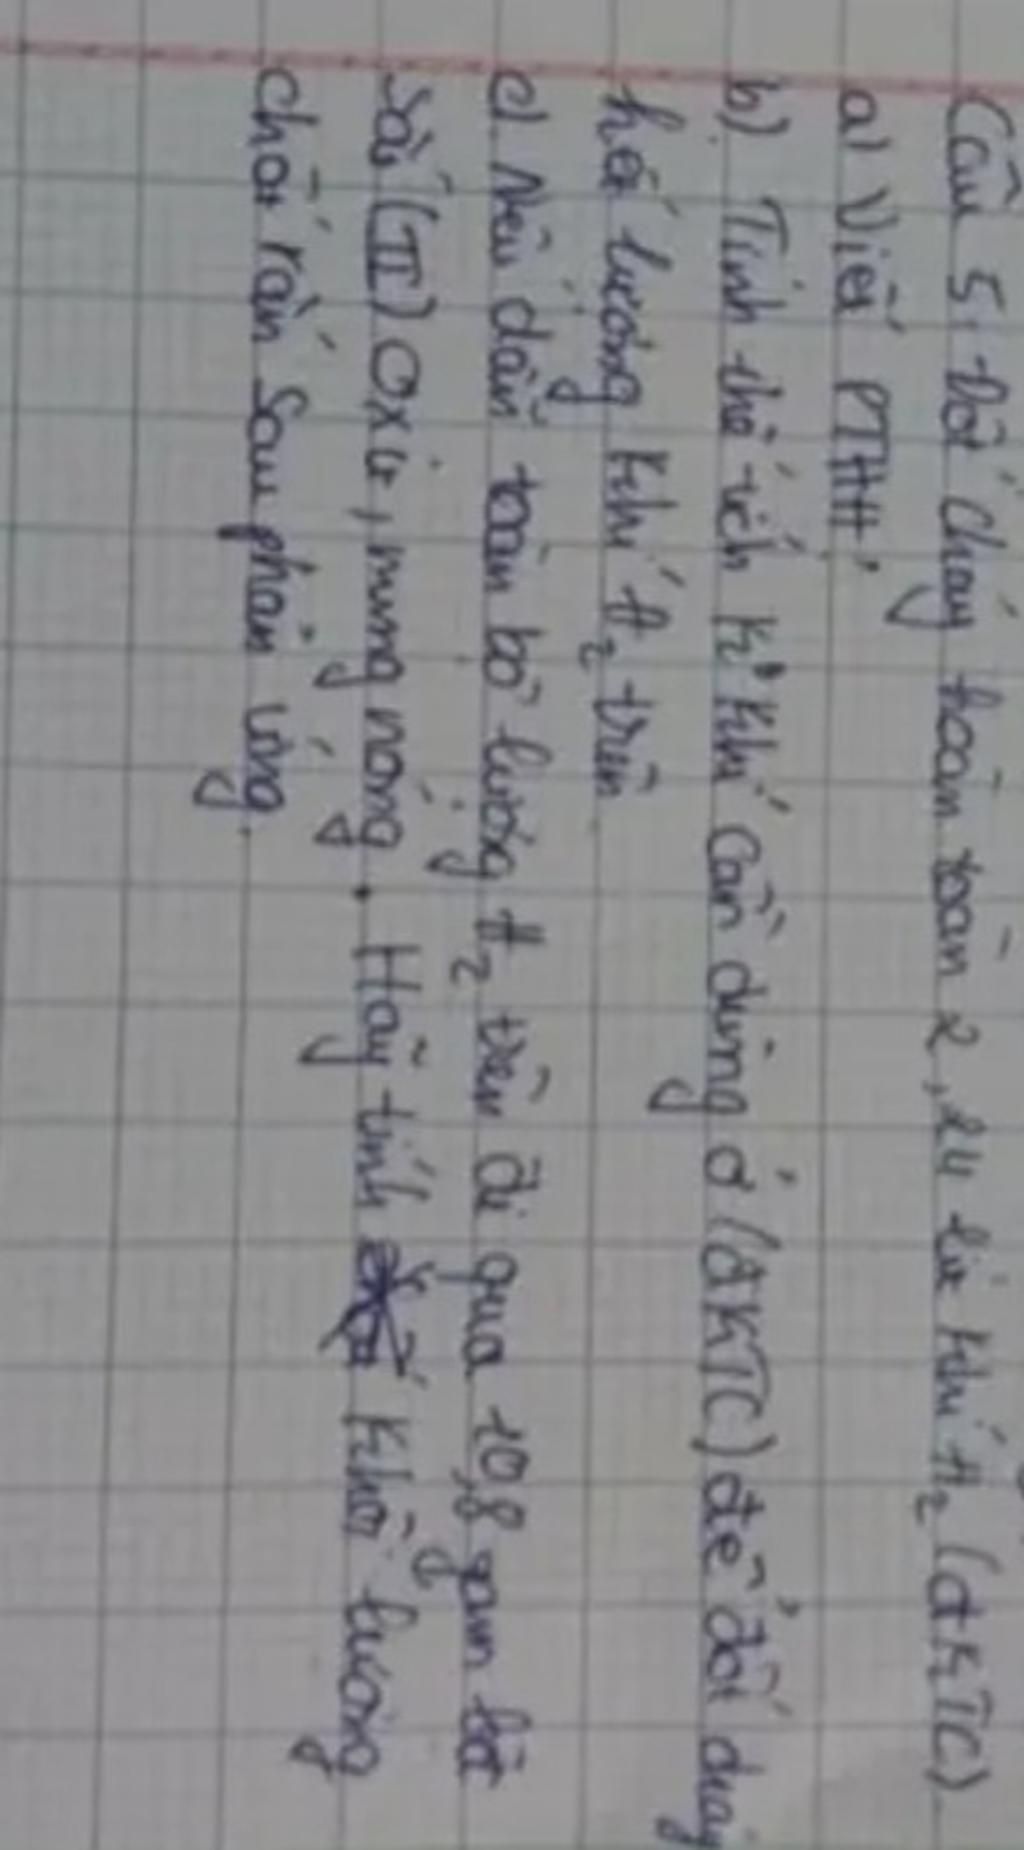 Câu 5: Đốt cháy hoàn toàn 2,24 lít khí H2 (đKTC).
a) Viết PTHH.
b) Tính thể tích K2 khí cần dùng ở (đKTC) để đốt cháy
hết lượng khí H2 trên
c) Nếu dẫn toàn bộ lượng H2 trên đi qua 10,8 gam bột
sắt (II) Oxit, nung nóng. Hãy tính khối lượng
chất rắn sau phản ứng.